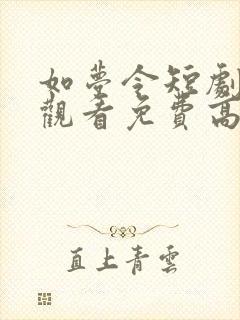 如夢令短劇
觀看免費高
直上青雲